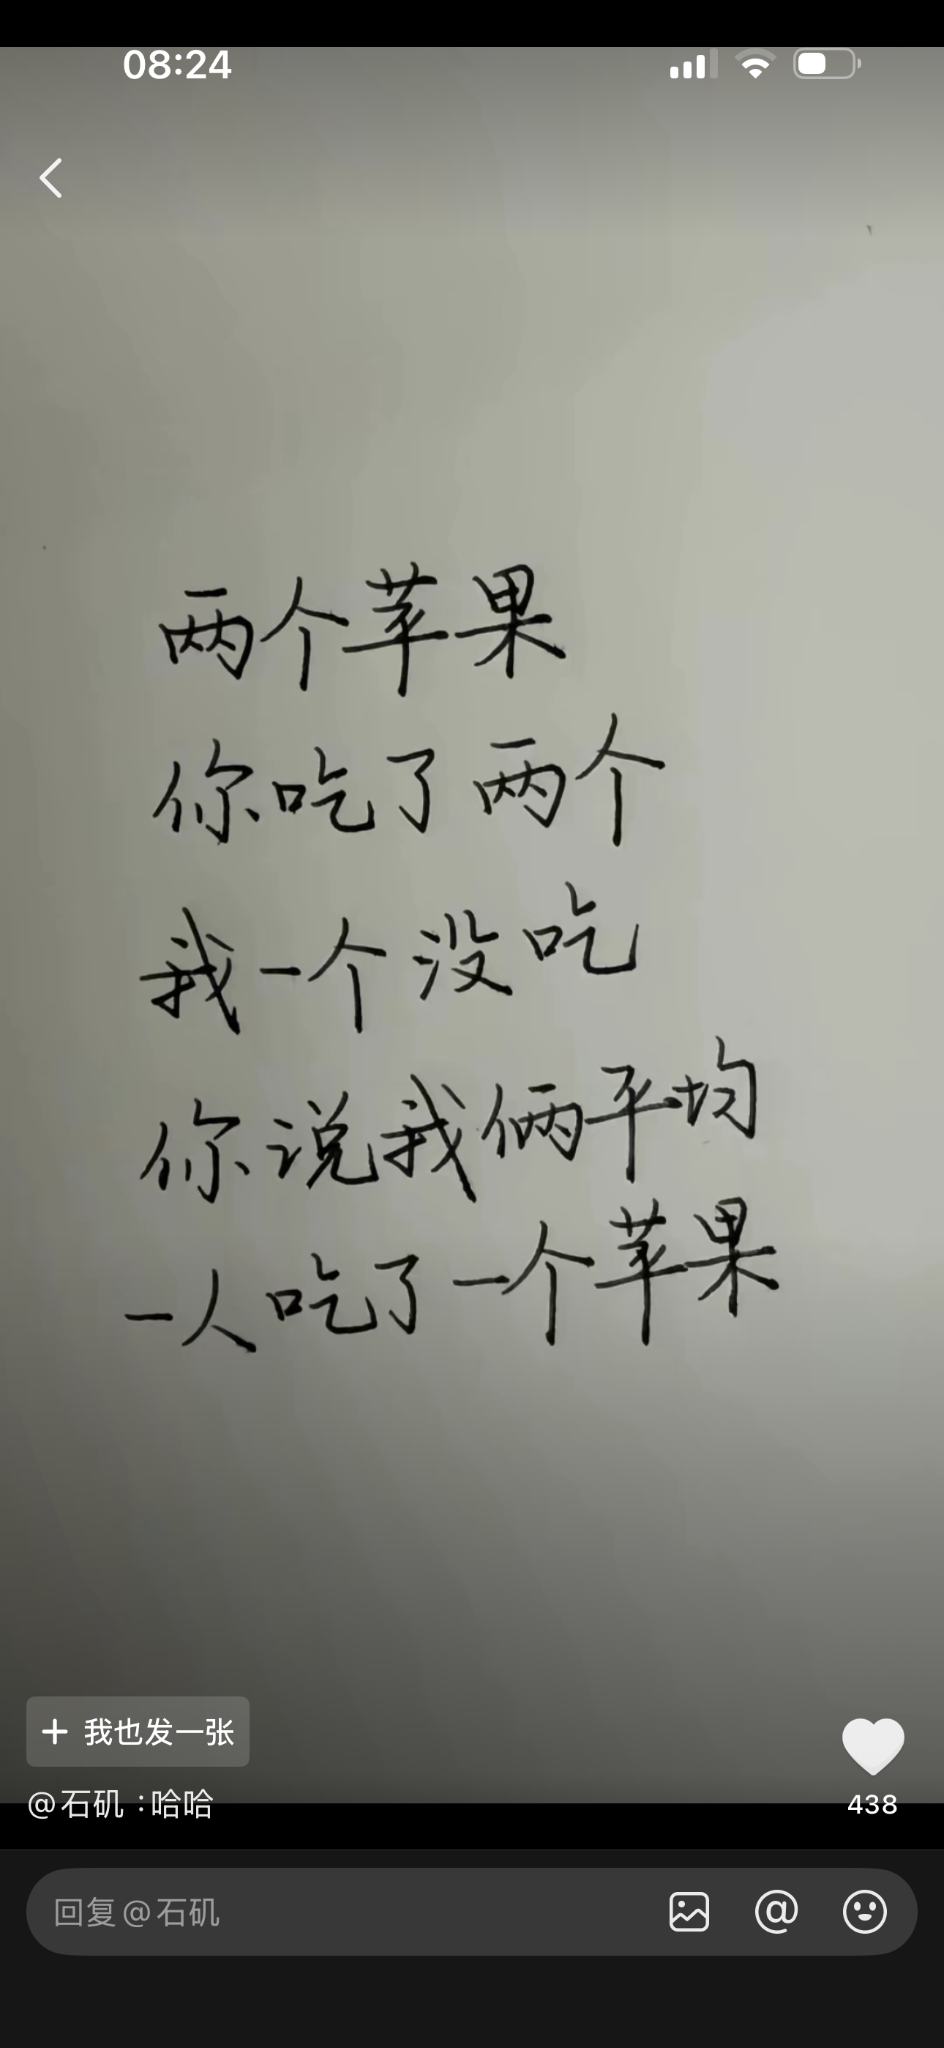 08:24
两个苹果
你吃了两个
我一个没吃
你说我俩平均
一人吃了一个苹果
+ 我也发一张
@石矶：哈哈
438
回复@石矶